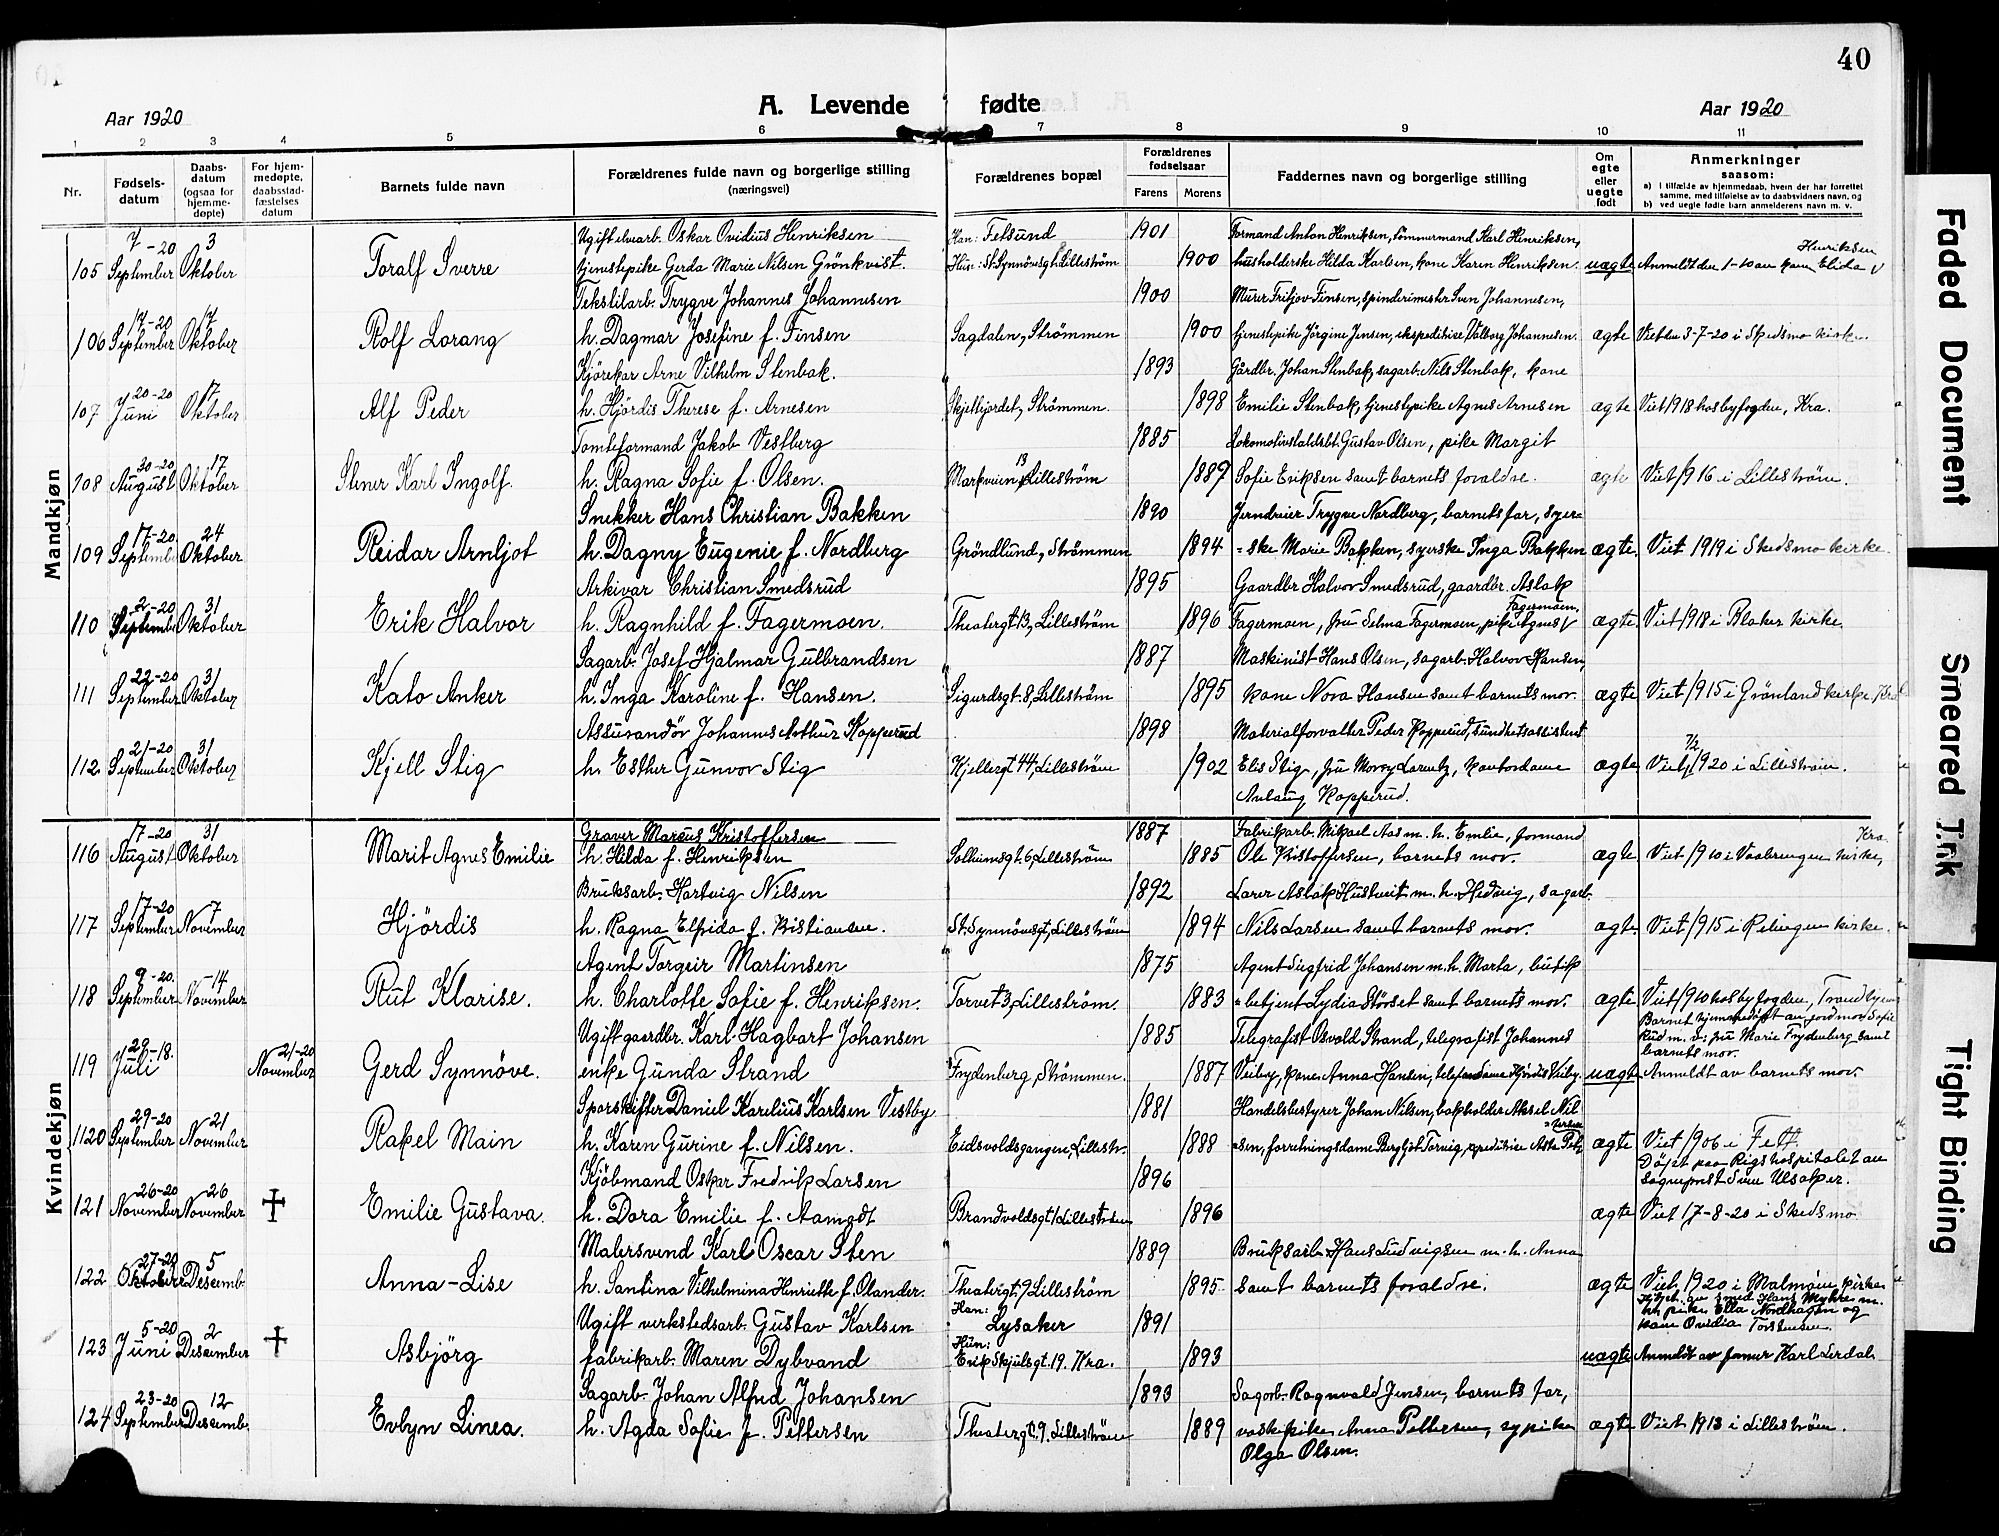 40
A. Levende fødte
Aar 1920
Aar 1920
1 2 3 4 5 6 7 8 9 10 11
Nr.
Fødsels-datum
Daabs-datum (ogsaa for hjemme-døpte)
For hjem-medøpte, daabsstad-fæstelses datum
Barnets fulde navn
Forældrenes fulde navn og borgerlige stilling (næringsvei)
Forældrenes bopæl
Forældrenes fødselsaar
Farens Morens
Faddernes navn og borgerlige stilling
Om egte eller uegte født
Anmerkninger saasom:
a) i tilfælde av hjemmedaab, hvem der har forrettet samme, med tilføielse av to daabsvidners navn, og
b) ved uegte fødte barn anmelderens navn m. v.
Mandkjøn
7-20 3 Ugift elvearb. Oskar Ovidius Henriksen Han: Fetsund 1901 Formand Anton Henriksen, tömmermand Karl Henriksen, Henriksen
105 September Oktober Toralf Sverre tjenestepike Gerda Marie Nilsen Grönkvist. Hun: St. Synnövsgt. Lilleström 1900 husholderske Hilda Karlsen, kone Karen Henriksen. uægte Anmeldt den 1-10 av kone Elida
Tekstilarb. Trygve Johannes Johannesen 1900 Murer Fritjov Finsen, spinderimester Sven Johannesen,
17-20 17
106 September Oktober Rolf Lorang h. Dagmar Josefine f. Finsen Sagdalen, Strömmen 1900 tjenestepike Jörgine Jensen, ekspeditrice Valborg Johannesen. ægte Viet den 3-7-20 i Skedsmo kirke.
Kjörekar Arne Vilhelm Stenbak. 1893 Gårdbr. Johan Stenbak, sagarb. Nils Stenbak, kone
20-20 17
107 Juni Oktober Alf Peder h. Hjördis Therese f. Arnesen Skjettjordet, Strömmen. 1898 Emilie Stenbak, tjenestepike Agnes Arnesen ægte Viet 1918 hos byfogden, Kra.
Tomteformand Jakob Vestberg 1885 Lokomotivstaldsbt. Gustav Olsen, pike Margit
30-20 17
108 August Oktober Stener Karl Ingolf. h. Ragna Sofie f. Olsen. Markveien 13 Lilleström 1889 Sofie Eriksen samt barnets foraldre. ægte Viet 1916 i Lilleström.
Snekker Hans Christian Bakken 1890 Jerndreier Trygve Nordberg, barnets far, syer=
17-20 24
109 September Oktober Reidar Arnljot h. Dagny Eugenie f. Nordberg Gröndlund, Strömmen 1894 =ske Marie Bakken, syerske Inga Bakken ægte. Viet 1919 i Skedsmo kirke.
Arkivar Christian Smedsrud 1895 Gaardbr. Halvor Smedsrud, gaardbr. Aslak
2-20 31 Fagermoen.
110 September Oktober Erik Halvor h. Ragnhild f. Fagermoen. Theatergt. 13, Lilleström 1896 Fagermoen, fru Selma Fagermoen, pike Agnes ægte Viet 1918 i Blaker kirke.
Sagarb. Josef Hjalmar Gulbrandsen 1887 Maskinist Hans Olsen, sagarb. Halvor Hansen,
22-20 31
111 September Oktober Kato Anker h. Inga Karoline f. Hansen. Sigurdsgt. 8, Lilleström 1895 kone Nora Hansen samt barnets mor. ægte Viet 1915 i Grönland kirke, Kra
Assurandör Johannes Arthur Kopperud 1898 Materialforvalter Peder Kopperud, sundhetsassistent
21-20 31 7/2
112 September Oktober Kjell Stig h. Esther Gunvor Stig Kjellergt 44, Lilleström 1902 Elis Stig, fru Lorentz, kontordame ægte Viet 1920 i Lilleström.
Anlaug Kopperud.
Kvindekjøn
17-20 31 Graver Marcus Kristoffersen 1887 Fabrikarb. Mikael Aas m. h. Emlie, formand Kra.
116 August Oktober Marit Agnes Emilie h. Hilda f. Henriksen Solheimsgt. 6, Lilleström 1885 Ole Kristoffersen, barnets mor. ægte Viet 1910 i Vaalerengen kirke,
Bruksarb. Hartvig Nilsen 1892 Larer Aslak Hustveit m. h. Hedvig, sagarb.
17-20 7
117 September November Hjördis h. Ragna Elfrida f. Kristiansen. St. Synnövsgt, Lilleström 1894 Nils Larsen samt barnets mor. ægte. Viet 1915 i Relingen kirke.
Agent Torgeir Martinsen 1875 Agent Sigfrid Johansen m. h. Marta, butik
9-20. -14
118 September November Rut Klarise. h. Charlotte Sofie f. Henriksen. Torvet 3, Lilleström. 1883 =betjent Lydia Störset samt barnets mor. ægte Viet 1910 hos byfogden, Trondhjem
Ugift gaardbr. Karl Hagbart Johansen 1885 Telegrafist Osvald Strand, telegrafist Johannes Barnet hjemmedöpt av jordmor Sofie Rud m. v: fru Marie Frydenberg samt barnets mor.
29-18. 21-20
119 Juli November Gerd Synnöve. enke Gunda Strand Frydenberg, Strömmen. 1887 Veiby, kone Anna Hansen, telefondame Hjördis Veiby. uægte Anmeldt av barnets mor.
Sporskifter Daniel Karelius Karlsen Vestby 1881 Handelsbestyrer Johan Nilsen, bokholder Aksel Nil=
29-20 21 =tersen
1120 September November Rakel Main h. Karen Gurine f. Nilsen. Eidsvoldsgangen, Lillestr. 1888 =sen, forretningsdame Bergljot Torvig, expeditrice Asta Pet= ægte Viet 1906 i Fett.
Kjöbmand Oskar Fredrik Larsen 1896 Döpt paa Rigshospitalet av sogneprest Ulsaker.
26-20 26
121 November November ✝ Emilie Gustava. h. Dora Emilie f. Aamodt Brandvoldsgt 1 Lilleström 1896 ægte Viet 17-8-20 i Skedsmo
Malersvend Karl Oscar Sten 1889 Bruksarb. Hans Ludvigsen m. h. Anna
27-20 5
122 Oktober Desemb. Anna-Lise h. Santina Vilhelmina Henriette f. Olander. Theatergt. 9 Lilleström 1895 samt barnets foraldre. ægte Viet 1920 i Malmöen kirke
Ugift verkstedsarb. Gustav Karlsen Han: Lysaker 1891 Hj.döpt. av smed Hans Myhre m. v. pike Ella Nordhagen og kone Ovidia Torstensen.
5-20 2
123 Juni Desember ✝ Asbjörg fabrikarb. Maren Dybvand Hun: Erik Skjulsgt. 19. Kra. 1893 uægte Anmeldt av former Karl Lerdal.
Sagarb. Johan Alfred Johansen 1893 Sagarb. Ragnvald Jensen, barnets far,
23-20 12
124 September Desemb. Evbyn Linea. h. Agda Sofie f. Pettersen Theatergt. 9. Lilleström 1889 vaskepike Anna Pettersen, sypike ægte Viet 1913 i Lilleström.
Olga Olsen.
Faded Document
Smeared Ink
Tight Binding